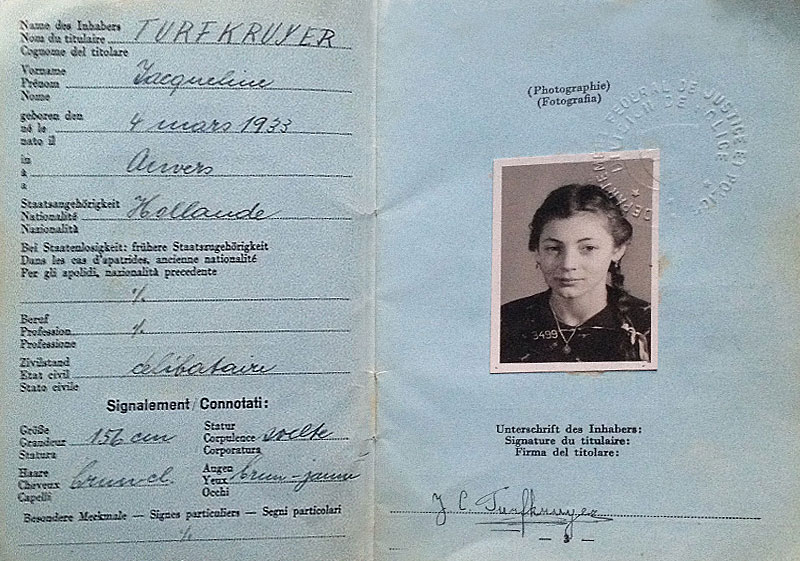 Name des Inhabers
Nom du titulaire TURFKRUYER
Cognome del titolare
Vorname
Prénom Jacqueline
Nome
geboren den
né le 4 mars 1933
nato il
in
à Anvers
a
Staatsangehörigkeit
Nationalité Hollande
Nazionalità
Bei Staatenlosigkeit: frühere Staatsangehörigkeit
Dans les cas d'apatrides, ancienne nationalité
Per gli apolidi, nazionalità precedente
%
Beruf
Profession %
Professione
Zivilstand
Etat civil célibataire
Stato civile
Signalement/Connotati:
Größe
Grandeur 156 cm
Statura
Statur
Corpulence svelte
Corporatura
Haare
Cheveux brun cl.
Capelli
Augen
Yeux brun-jaune
Occhi
Besondere Merkmale — Signes particuliers — Segni particolari
%
(Photographie)
(Fotografia)
FEDERAL DE JUSTICE ET POLICE
DIVISION DE POLICE
3499
Unterschrift des Inhabers:
Signature du titulaire:
Firma del titolare:
J C. Turfkruyer
— 3 —